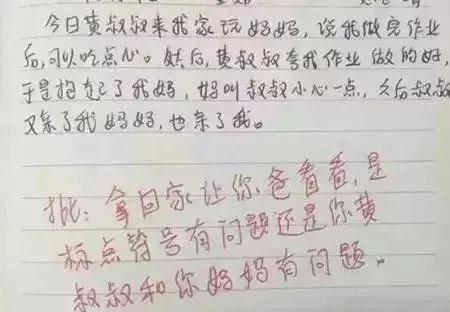 今日黄叔叔来我家玩妈妈，说我做完作业
后，可以吃点心。然后，黄叔叔夸我作业做的好，
于是抱起了我妈，妈叫叔叔小心一点，之后叔叔
又亲了我妈妈，也亲了我。
批：拿回家让你爸看看，是
标点符号有问题还是你黄
叔叔和你妈妈有问题。